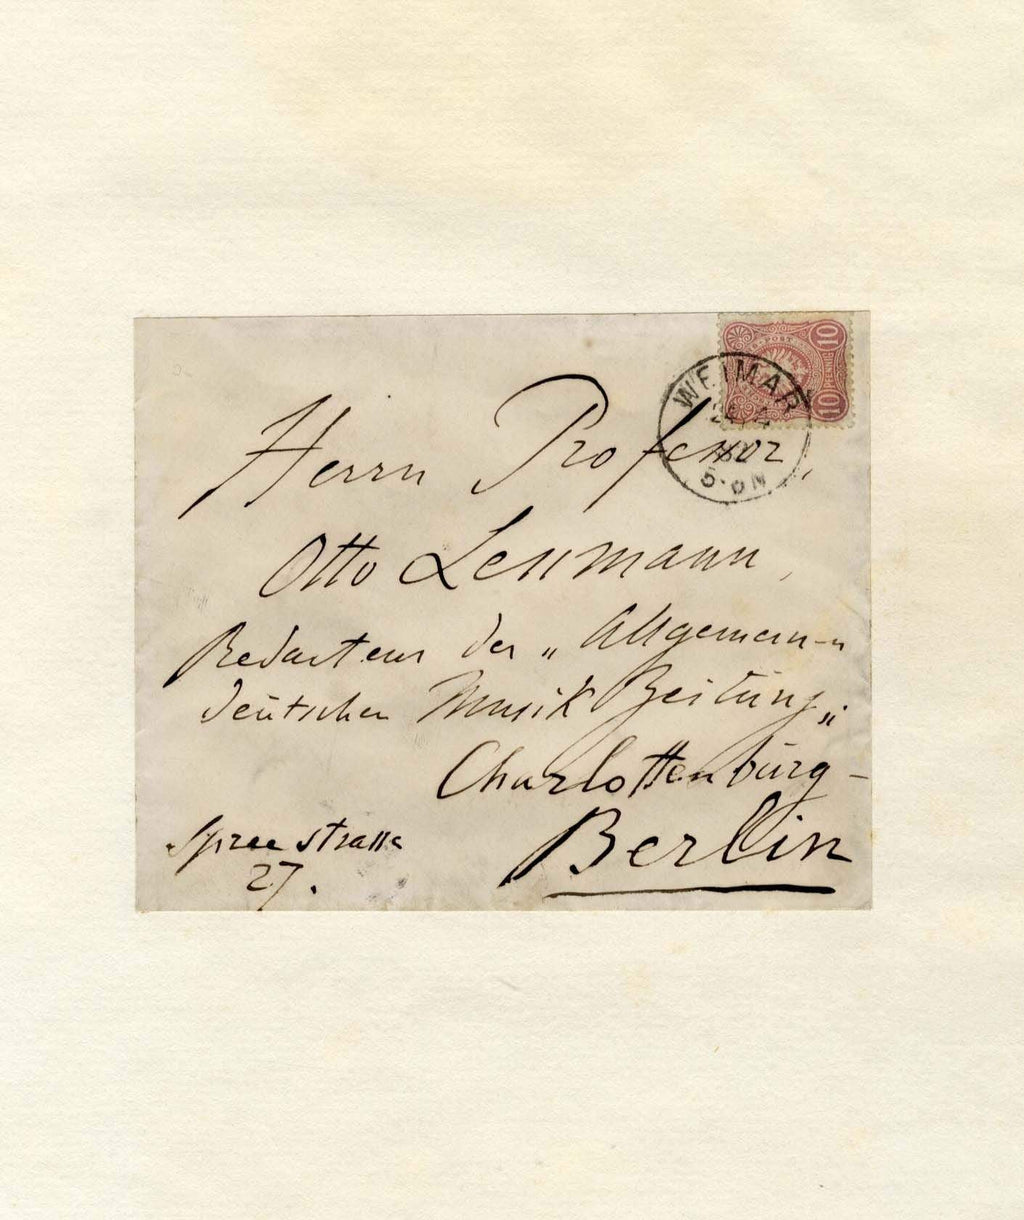 10
POST
PFENNIG
10
WEIMAR
24 4
5-6N
Herrn Professor,
Otto Lessmann,
Redacteur der „Allgemein-n
deutschen Musik Zeitung„.
Charlottenburg-
Berlin
Spree strasse
27.